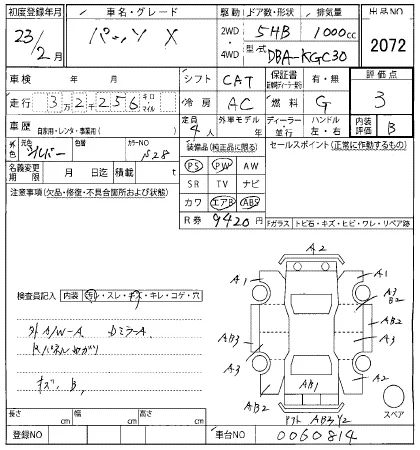 初度登録年月 車名・グレード 駆動 ドア数・形状 排気量 出品NO
23/2月 パッソ X 2WD・4WD 5HB 1000cc 2072
型式 DBA-KGC30
車検 年 月 シフト CAT 保証書 有・無 評価点
走行 3万2千256 キロ・マイル 冷房 AC 燃料 G 3
車歴 自家用・レンタ・事業用( ) 定員 4人 外車モデル年 年 ディーラー・並行 ハンドル 左・右 内装評価 B
外色 シルバー 元色 カラーNO S28 装備品(純正品に限る) セールスポイント(正常に作動するもの)
名義変更期限 月 日迄 積載 t PS PW AW
注意事項(欠品・修復・不具合箇所および状態) SR TV ナビ
カワ エアB ABS
R券 9420円 Fガラス トビ石・キズ・ヒビ・ワレ・リペア跡
A2
A1 A1
A3 B2
検査員記入 内装 汚レ・スレ・キズ・キレ・コゲ・穴
AB2
外A/W-A DミラーA AB3 A3
Kパネルセガリ A3 A2
キズ B, AB1
AB2 スペア
リフト AB3 Y2
長さ cm 幅 cm 高さ cm
登録NO 車台NO 0060814